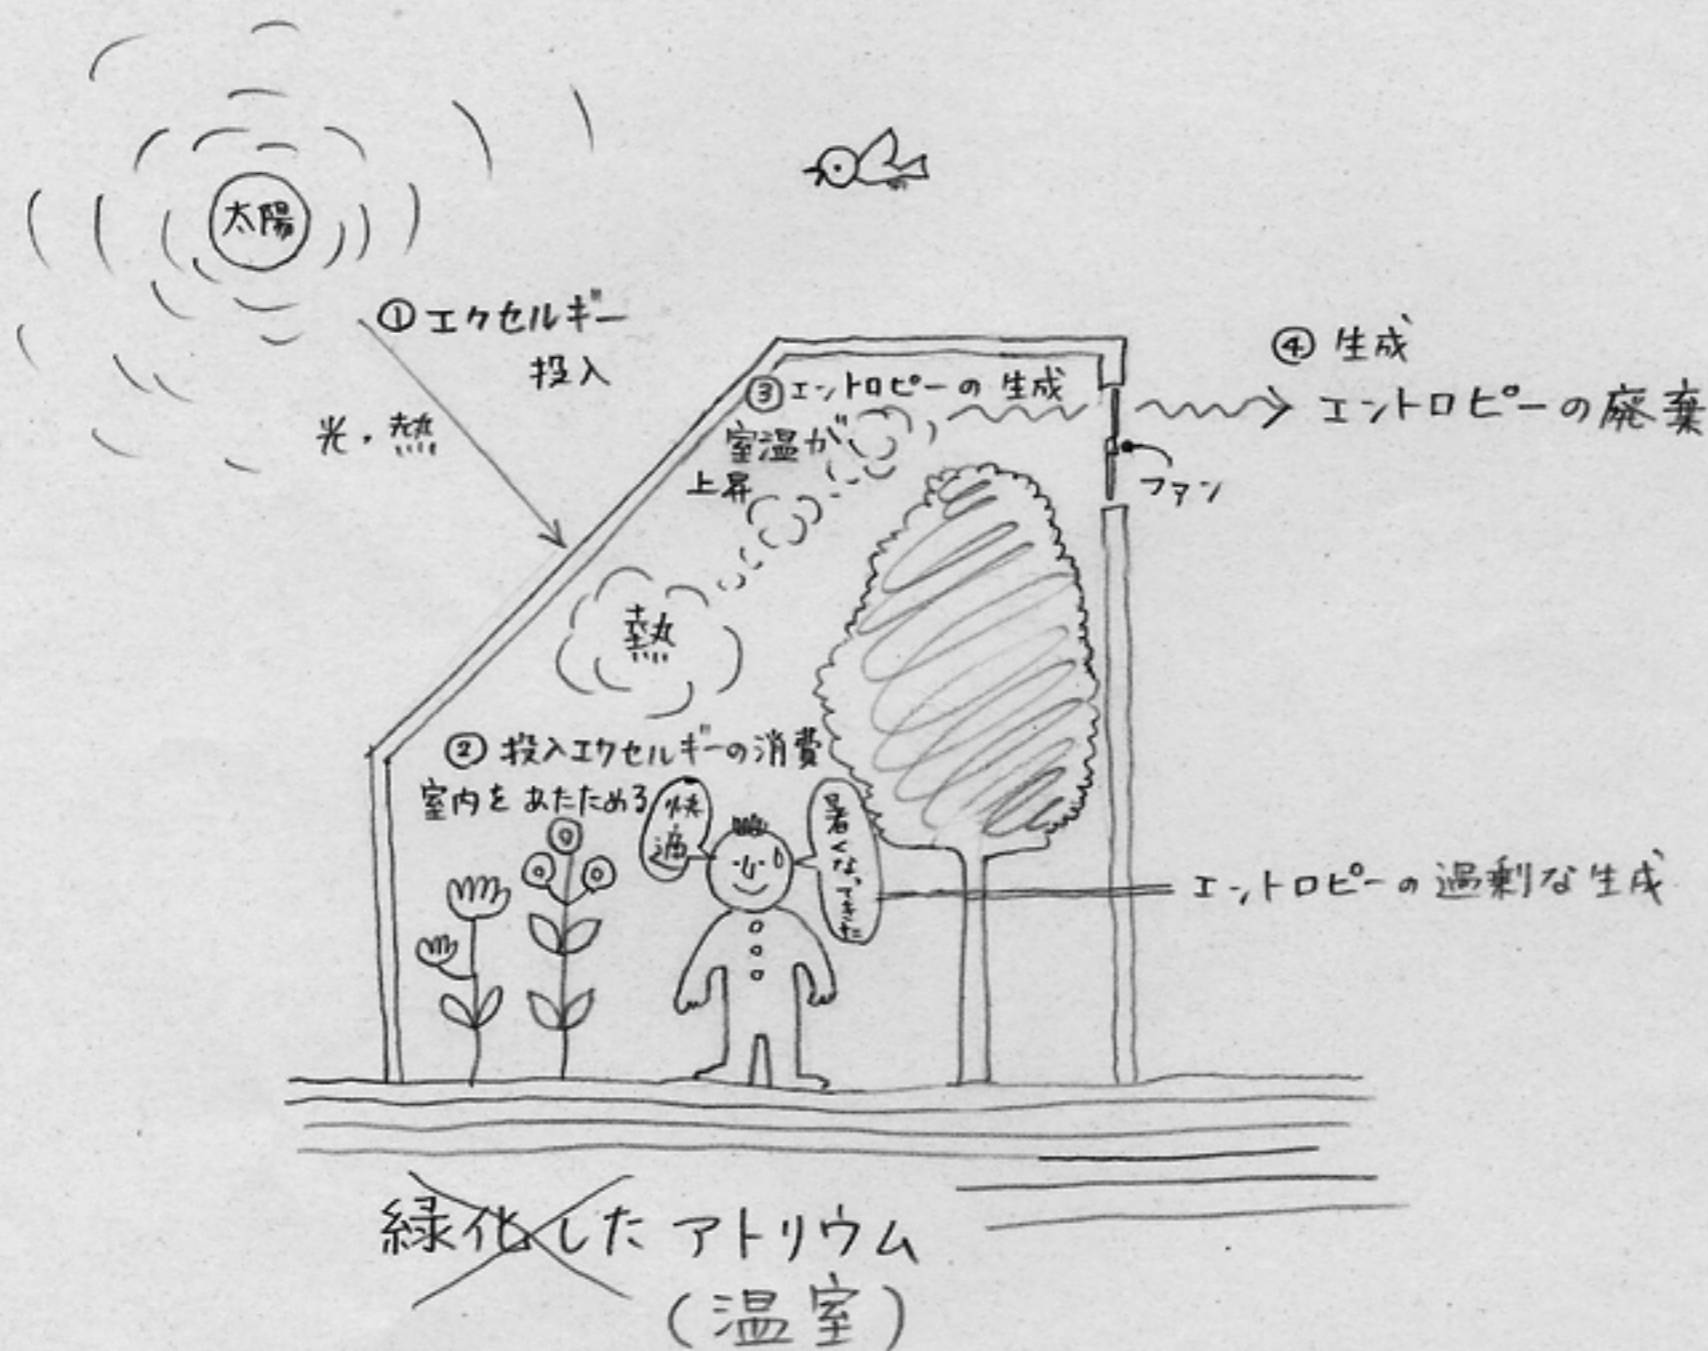 太陽
①エクセルギー
投入
光・熱
③エントロピーの生成
室温が
上昇
④生成
エントロピーの廃棄
ファン
熱
②投入エクセルギーの消費
室内をあたためる
快適
暑くなってきた
エントロピーの過剰な生成
緑化したアトリウム
(温室)